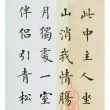 此中主人坐
山消我情
月獨一室
伴侶引青松